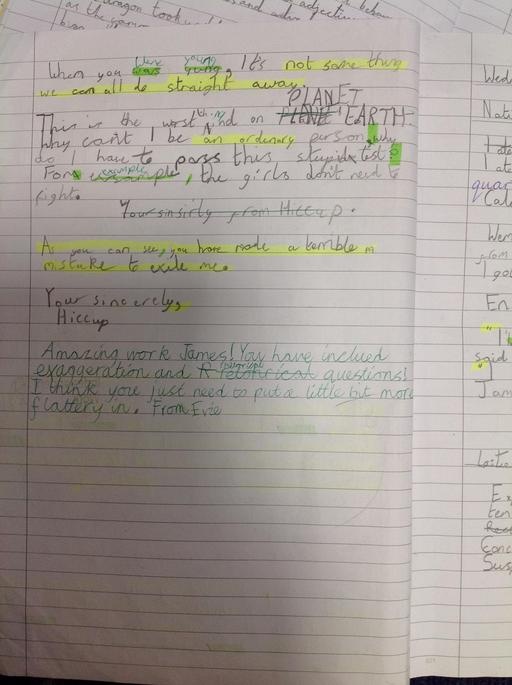 as the
dragon took
and adv adjectiv
When you was were yung young. It's not some thing
we can all do straight away.
PLANET
This is the worst thing on EARTH.
Why can't I be an ordenary person, why
do I have to pass this stupid test?
For example, the girls don't need to
fight.
Your sinsirly from Hiccup.
As you can see, you have made a terrible m
mistake to exile me.
Your sincerely,
Hiccup
Amazing work James! You have inclued
exaggeration and R retorical questions!
I think you just need to put a little bit more
flattery in. From Evie
Wed
Nat
I ate
I ate
quar
Cal
Wem
from
I go
En
"I
said
Jam
E
ten
Conc
Sus